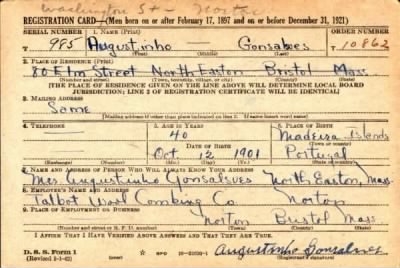 Washington St - Norton
REGISTRATION CARD—(Men born on or after February 17, 1897 and on or before December 31, 1921)
SERIAL NUMBER 1. NAME (Print) ORDER NUMBER
T 985 Augustinho Gonsalves T 10862
2. PLACE OF RESIDENCE (Print)
80 Elm Street North Easton Bristol Mass
(Number and street) (Town, township, village, or city) (County) (State)
[THE PLACE OF RESIDENCE GIVEN ON THE LINE ABOVE WILL DETERMINE LOCAL BOARD
JURISDICTION; LINE 2 OF REGISTRATION CERTIFICATE WILL BE IDENTICAL]
3. MAILING ADDRESS
Same
[Mailing address if other than place indicated on line 2. If same insert word same]
4. TELEPHONE 5. AGE IN YEARS 6. PLACE OF BIRTH
40 Madeira Islands
DATE OF BIRTH (Town or county)
Oct 12 1901 Portugal
(Exchange) (Number) (Mo.) (Day) (Yr.) (State or country)
7. NAME AND ADDRESS OF PERSON WHO WILL ALWAYS KNOW YOUR ADDRESS
Mrs Augustinho Gonsalves North Easton, Mass
8. EMPLOYER'S NAME AND ADDRESS
Talbot Wool Combing Co Norton
9. PLACE OF EMPLOYMENT OR BUSINESS
Norton Bristol Mass
(Number and street or R. F. D. number) (Town) (County) (State)
I AFFIRM THAT I HAVE VERIFIED ABOVE ANSWERS AND THAT THEY ARE TRUE.
D. S. S. Form 1
(Revised 1-1-42) (over) Augustinho Gonsalves